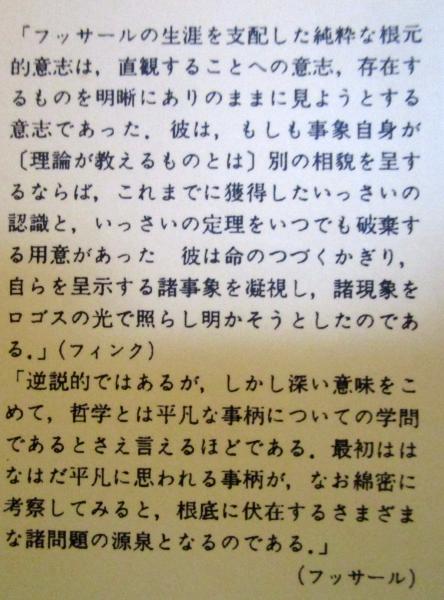 「フッサールの生涯を支配した純粋な根元
的意志は，直観することへの意志，存在す
るものを明晰にありのままに見ようとする
意志であった．彼は，もしも事象自身が
〔理論が教えるものとは〕別の相貌を呈す
るならば，これまでに獲得したいっさいの
認識と，いっさいの定理をいつでも破棄す
る用意があった　彼は命のつづくかぎり，
自らを呈示する諸事象を凝視し，諸現象を
ロゴスの光で照らし明かそうとしたのであ
る．」（フィンク）
「逆説的ではあるが，しかし深い意味をこ
めて，哲学とは平凡な事柄についての学問
であるとさえ言えるほどである．最初はは
なはだ平凡に思われる事柄が，なお綿密に
考察してみると，根底に伏在するさまざま
な諸問題の源泉となるのである．」
（フッサール）